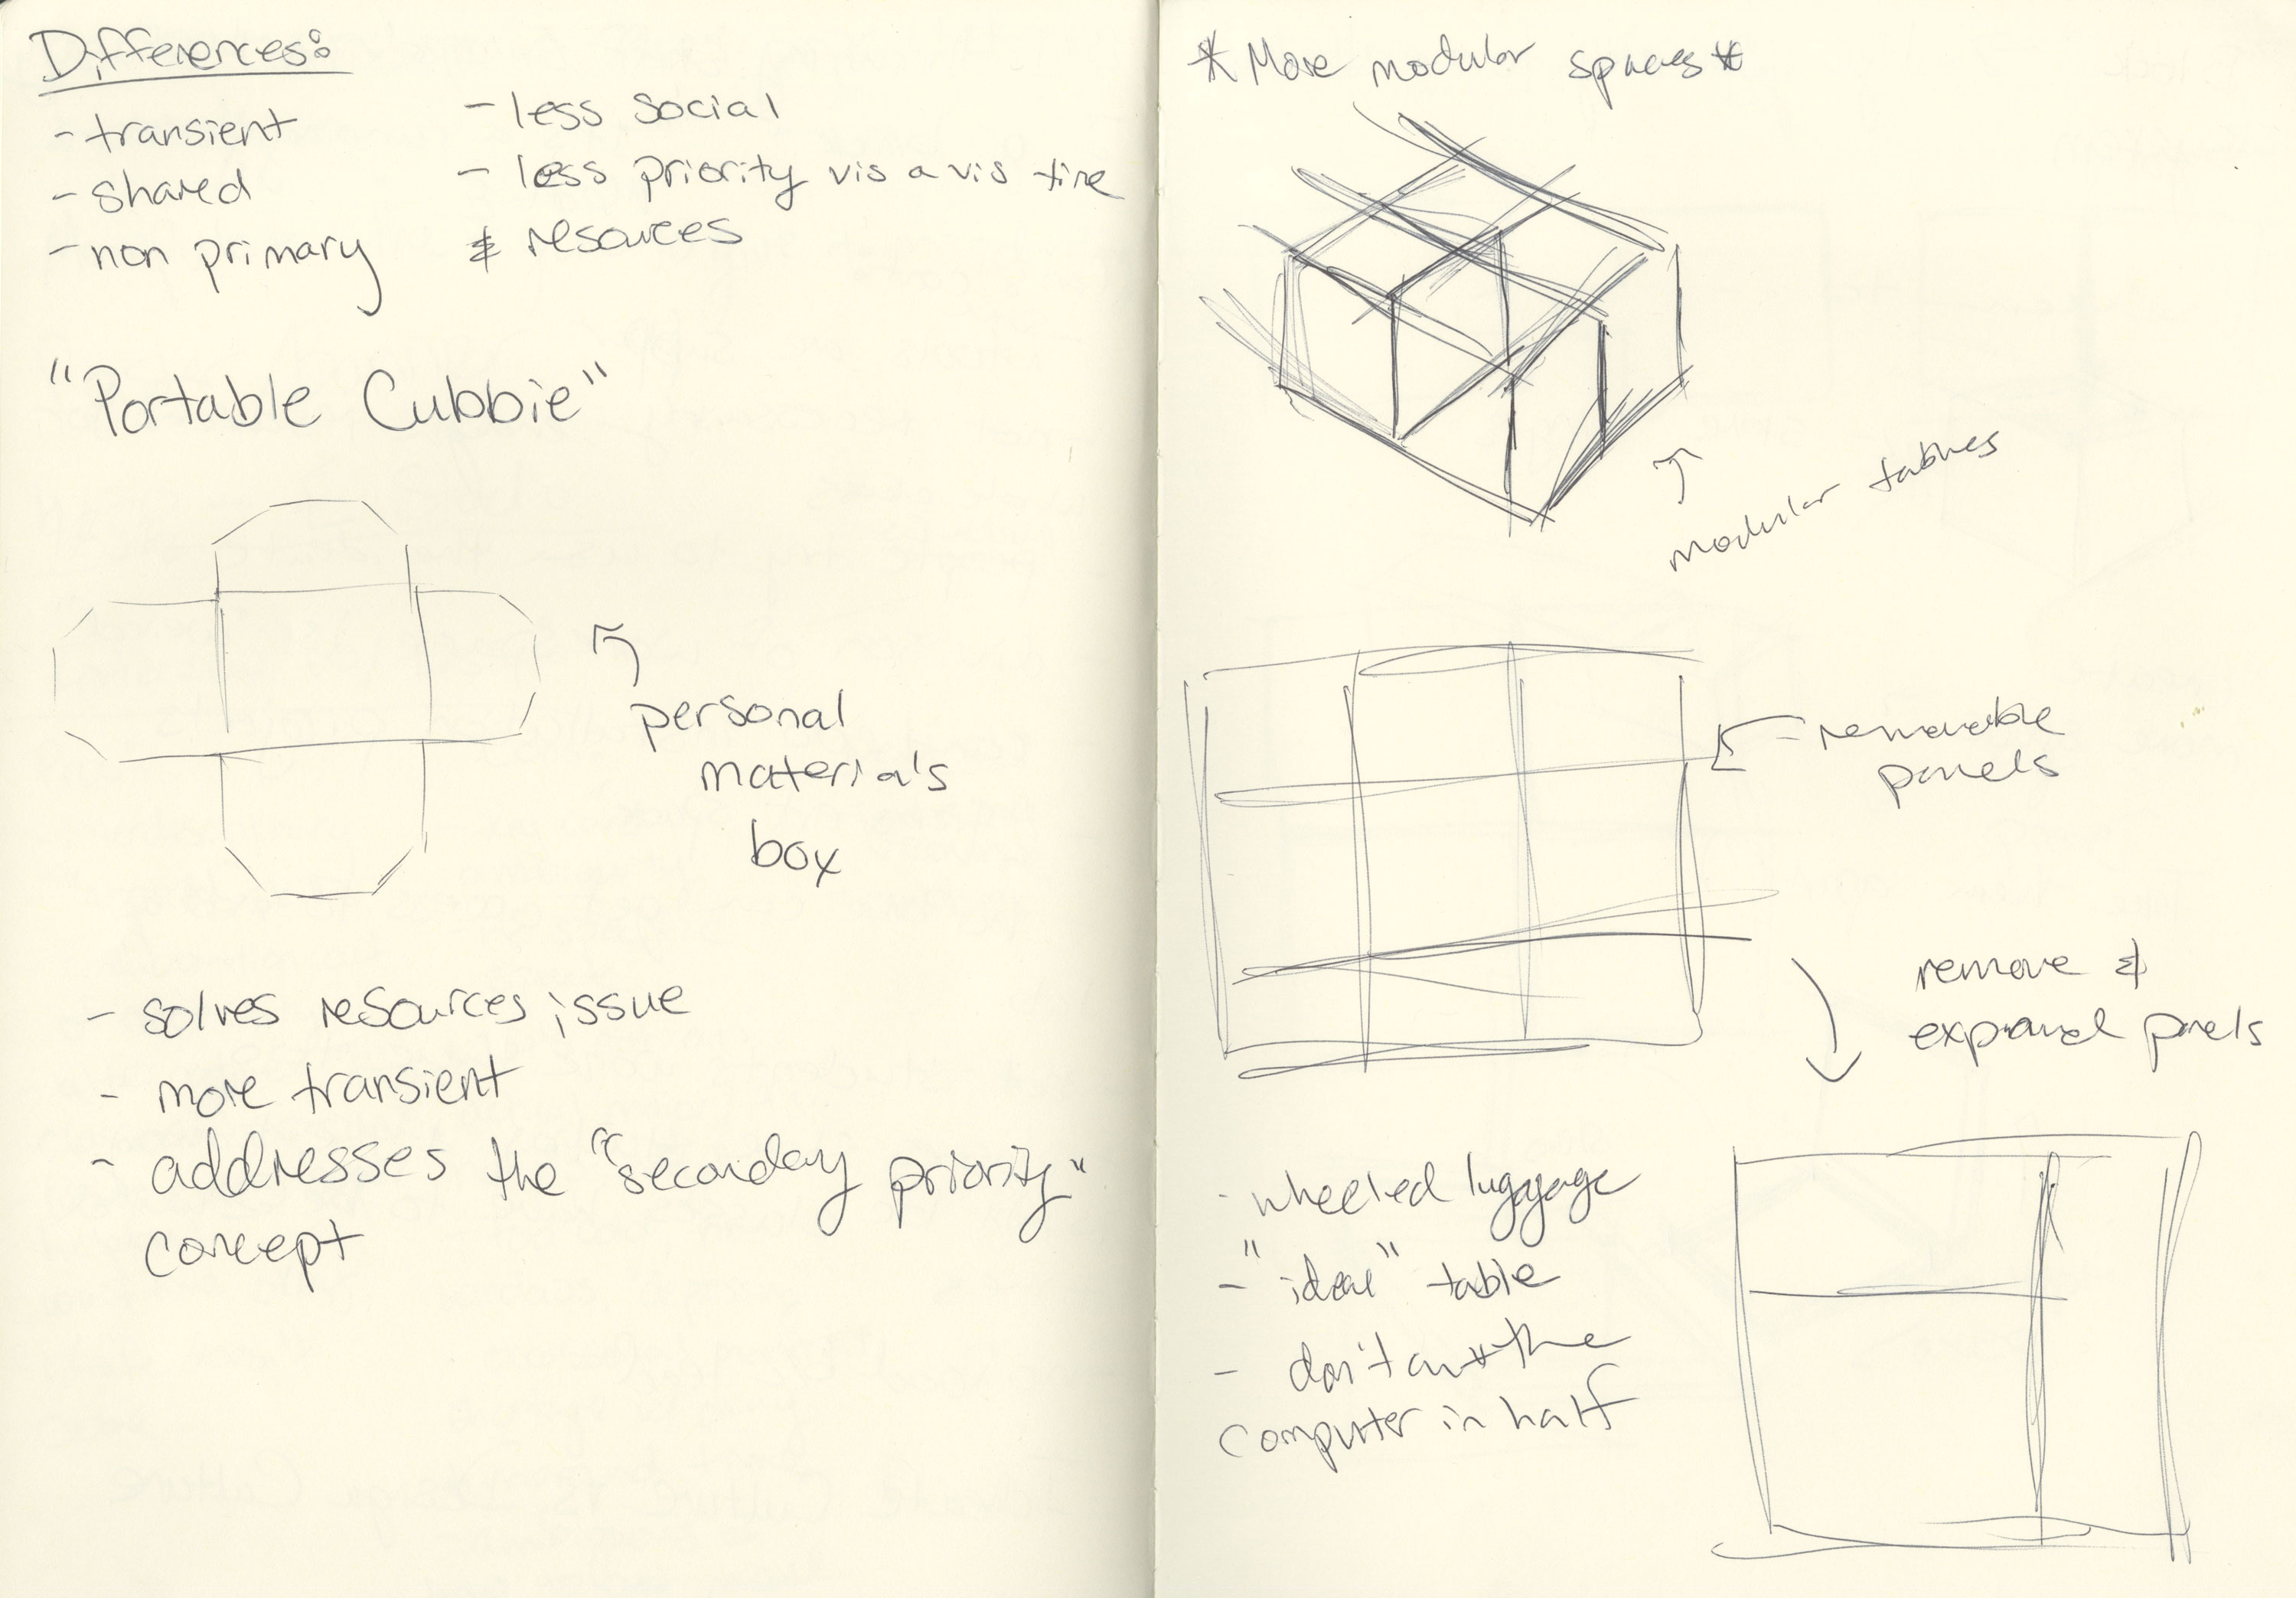 Differences:
- transient
- shared
- non primary
- less social
- less priority vis a vis time
& resources
"Portable Cubbie"
personal
materials
box
- solves resources issue
- more transient
- addresses the "seconday priority"
concept
* More modular spaces *
modular tables
removable
panels
remove &
expand panels
- wheeled luggage
- "ideal" table
- don't cut the
computer in half